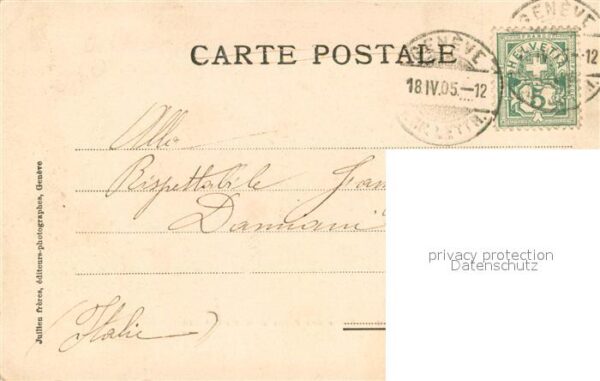 CARTE POSTALE
GENÈVE
18.IV.05.–12
GENÈVE
–12
FRANCO
HELVETIA
5
Alla
Rispettabile Fam
Damiani
privacy protection
Datenschutz
(Italie)
Jullien frères, éditeurs-photographes, Genève